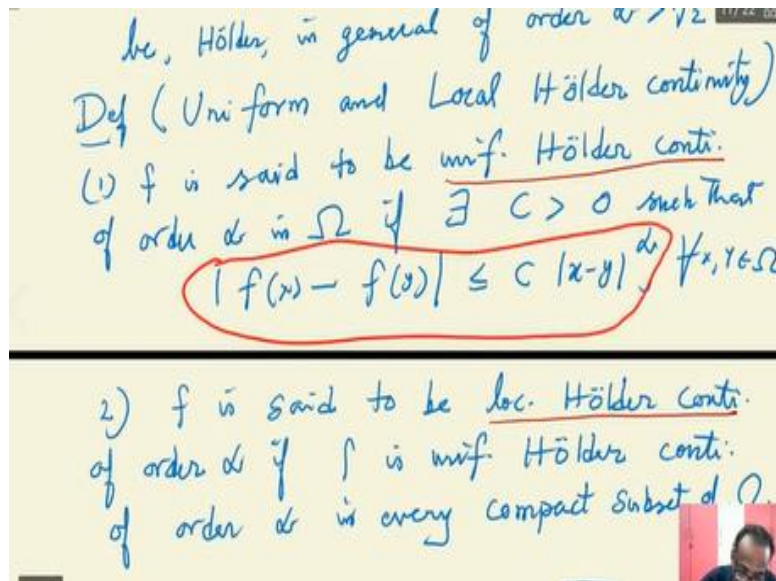 be, Hölder, in general of order α > 1/2
11/22
Def (Uniform and Local Hölder continuity)
(1) f is said to be unif. Hölder conti.
of order α in Ω if ∃ C > 0 such that
|f(x) - f(y)| ≤ C |x-y|^α, ∀ x, y ∈ Ω
2) f is said to be loc. Hölder conti.
of order α if f is unif. Hölder conti.
of order α in every compact subset of Ω.